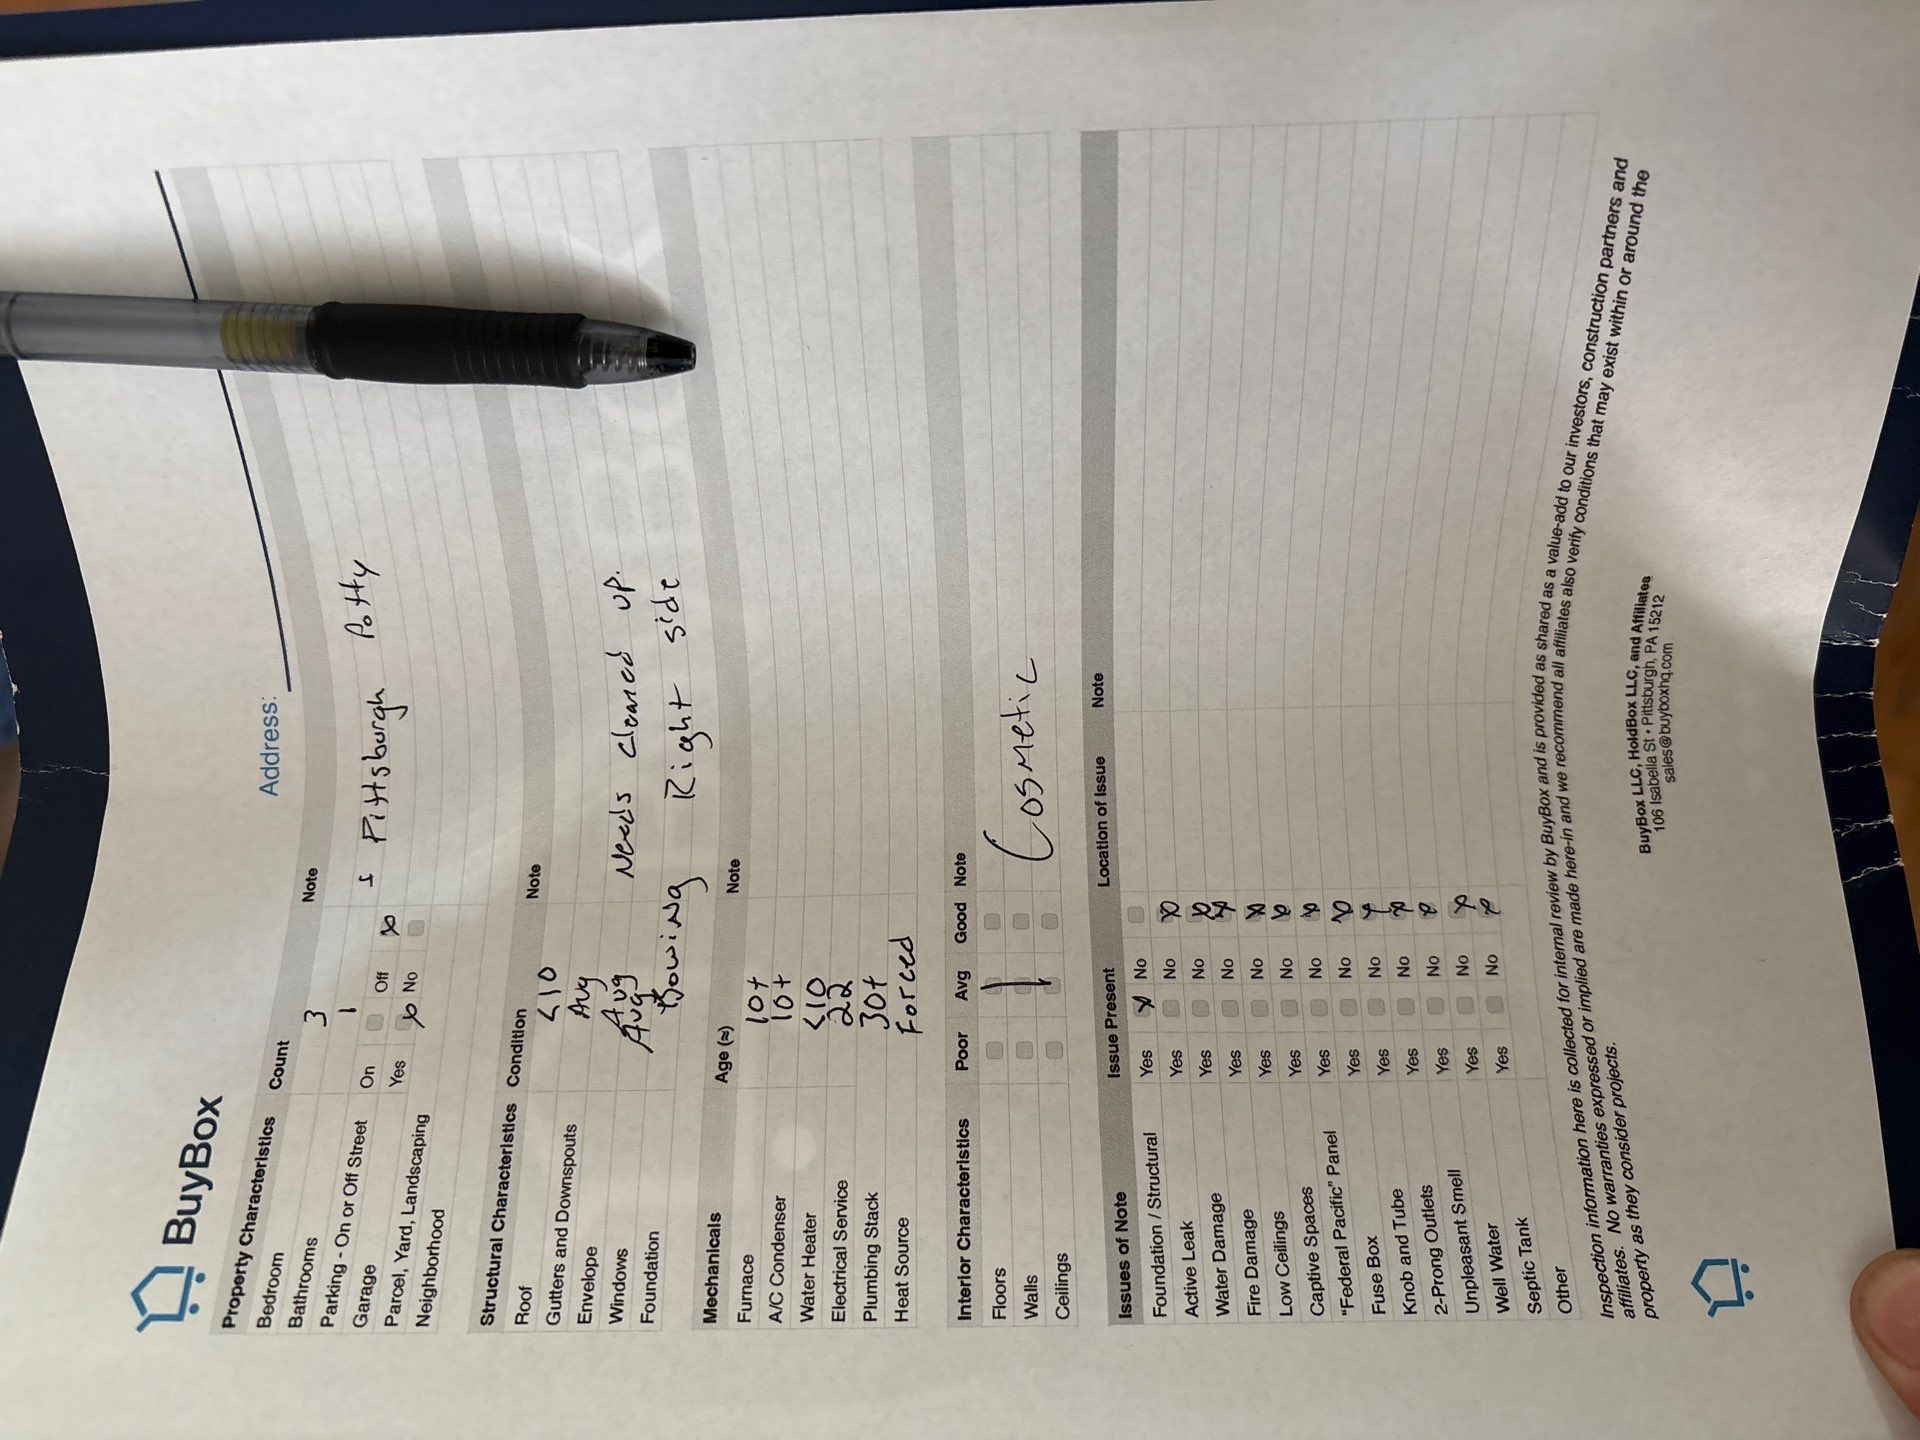 BuyBox
Address:
Property Characteristics Count Note
Bedroom 3
Bathrooms 1 Pittsburgh Potty
Parking - On or Off Street On Off
Garage Yes No
Parcel, Yard, Landscaping
Neighborhood
Structural Characteristics Condition Note
Roof <10
Gutters and Downspouts Avg
Envelope Avg Needs cleaned up.
Windows Avg
Foundation Bowing Right side
Mechanicals Age (≈) Note
Furnace 10+
A/C Condenser 10+
Water Heater <10
Electrical Service 22
Plumbing Stack 30+
Heat Source Forced
Interior Characteristics Poor Avg Good Note
Floors
Walls Cosmetic
Ceilings
Issues of Note Issue Present Location of Issue Note
Foundation / Structural Yes X No
Active Leak Yes No X
Water Damage Yes No X
Fire Damage Yes No X
Low Ceilings Yes No X
Captive Spaces Yes No X
"Federal Pacific" Panel Yes No X
Fuse Box Yes No X
Knob and Tube Yes No X
2-Prong Outlets Yes No X
Unpleasant Smell Yes No X
Well Water Yes No X
Septic Tank Yes No X
Other
Inspection information here is collected for internal review by BuyBox and is provided as shared as a value-add to our investors, construction partners and
affiliates. No warranties expressed or implied are made here-in and we recommend all affiliates also verify conditions that may exist within or around the
property as they consider projects.
BuyBox LLC, HoldBox LLC, and Affiliates
106 Isabella St • Pittsburgh, PA 15212
sales@buyboxhq.com